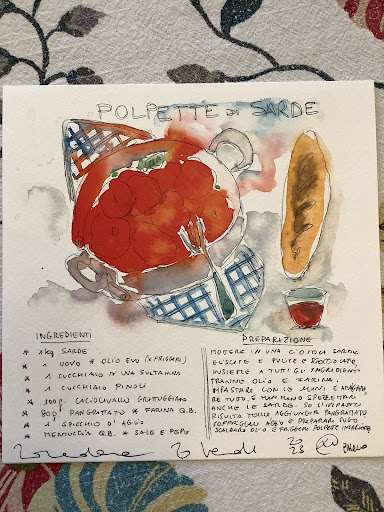 POLPETTE DI SARDE
INGREDIENTI
* 1 kg SARDE
* 1 UOVO * OLIO EVO (X FRIGGERE)
* 1 CUCCHIAIO DI UVA SULTANINA
* 1 CUCCHIAIO PINOLI
* 100g CACIOCAVALLO GRATTUGGIATO
* 80g PANGRATTATO * FARINA Q.B.
* 1 SPICCHIO D'AGLIO
* MENTUCCIA Q.B. * SALE E PEPE
PREPARAZIONE
METTERE IN UNA CIOTOLA SARDE
E PULITE E
INSIEME A TUTTI GLI INGREDIENTI
TRANNE OLIO E FARINA.
IMPASTARE CON LE MANI E
RE TUTTO. E MAN MANO SPEZZETTARE
ANCHE LE SARDE. SE L'IMPASTO
RISULTA MOLLE AGGIUNGERE PANGRATTATO
E PREPARARE TUTTO
SCALDARE OLIO E FRIGGERE POLPETTE INFARINATE
2023